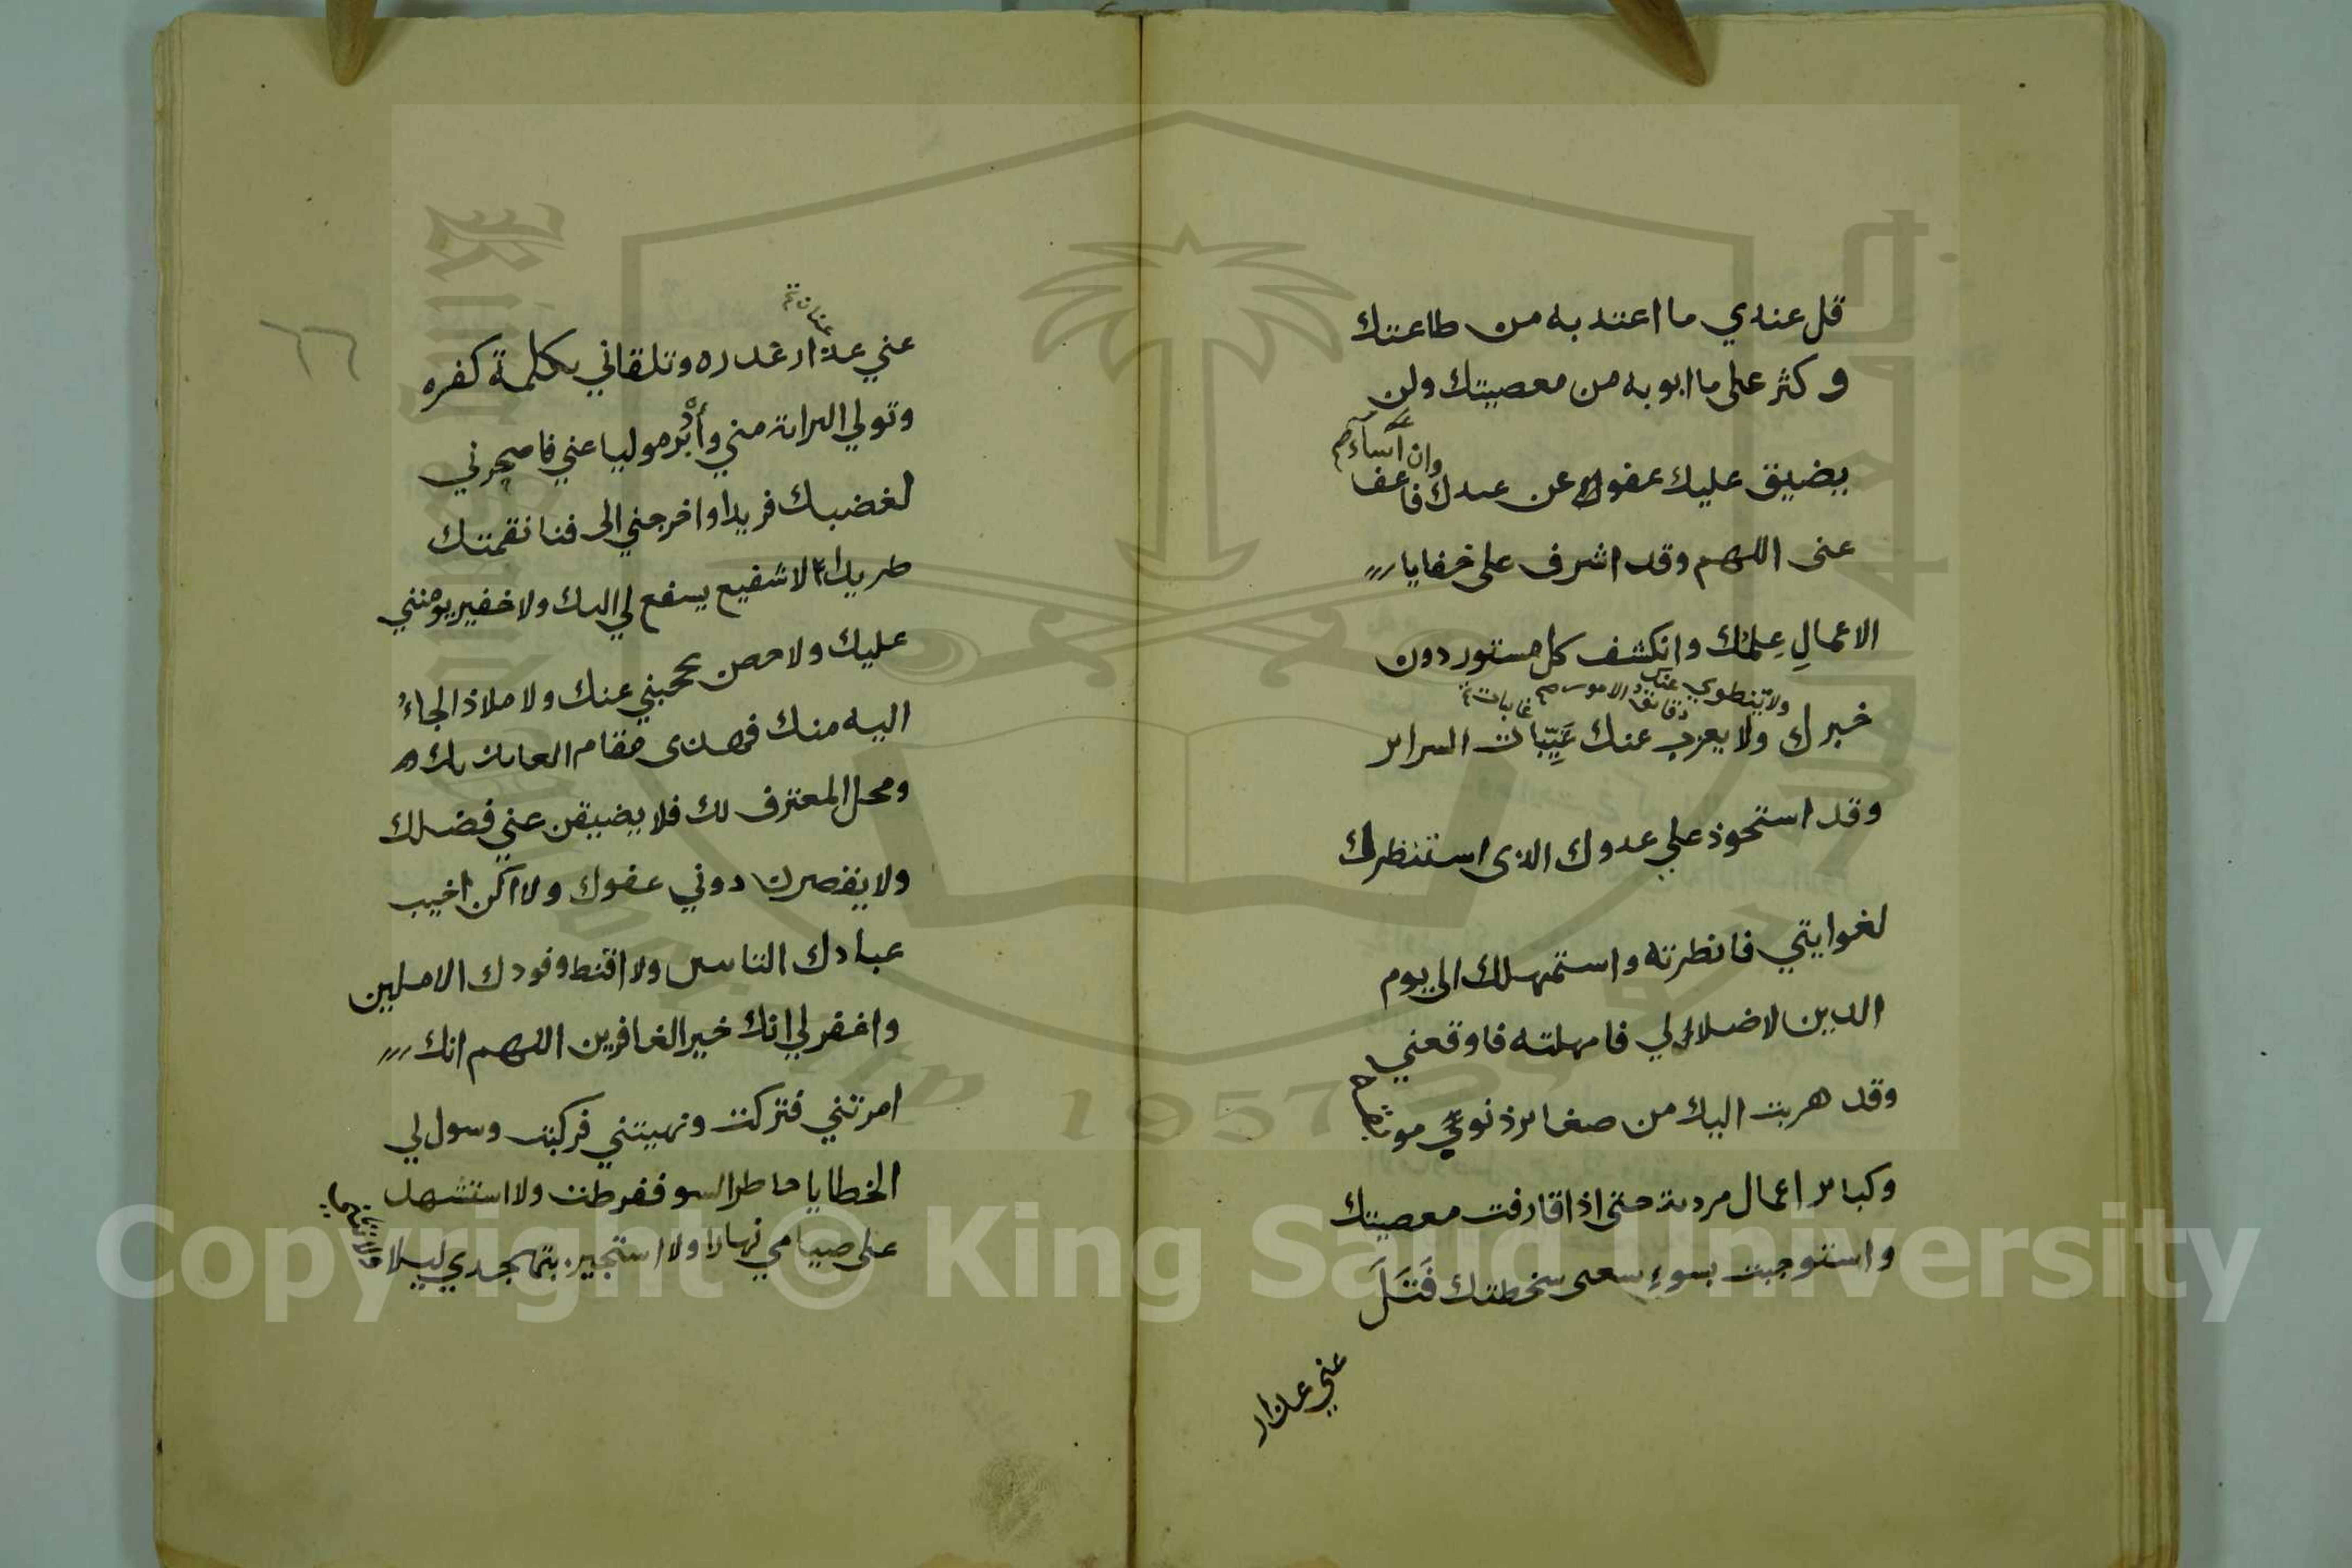 قل عندي ما اعتد به من طاعتك
وكثر على ما ابو به من معصيتك ولن
وان اساء
يضيق عليك عفو عن عبدك فاعف
عنى اللهم وقد اشرف على خفايا
الاعمالِ عِلمُك وانكشف كل مستور دون
ولا ينطوي عنك دقائق الامور
خبرك ولا يعزب عنك غَيِّبات السرائر
وقد استحوذ علي عدوك الذى استنظرك
لغوايتي فانظرته واستمهلك الى يوم
الدين لاضلالي فامهلته فاوقعني
وقد هربت اليك من صغائر ذنوب
وكبائر اعمال مردية حتى اذا قارفت معصيتك
واستوجبت بسوءِ سعى سخطتك فَتَلَ
عني عذار
٦٦
عني عذار غدره وتلقاني بكلمة كفره
وتولي البراة مني وأدْبر موليا عني فاصحرني
لغضبك فريدا واخرجني الى فنا نقمتك
طريدا لا شفيع يشفع لي اليك ولا خفير يومنني
عليك ولا حصن يحجبني عنك ولا ملاذ الجاءُ
اليه منك فهذى مقام العائذ بك
ومحل المعترف لك فلا يضيقن عني فضلك
ولا يقصرن دوني عفوك ولا اكن اخيب
عبادك التائبين ولا اقنط وفودك الاملين
واغفر لي انك خير الغافرين اللهم انك
امرتني فتركت ونهيتني فركبت وسول لي
الخطايا خاطر السو ففرطت ولا استشهد
على صيامي نهارا ولا استجير بتهجدي ليلا
Copyright © King Saud University
1957